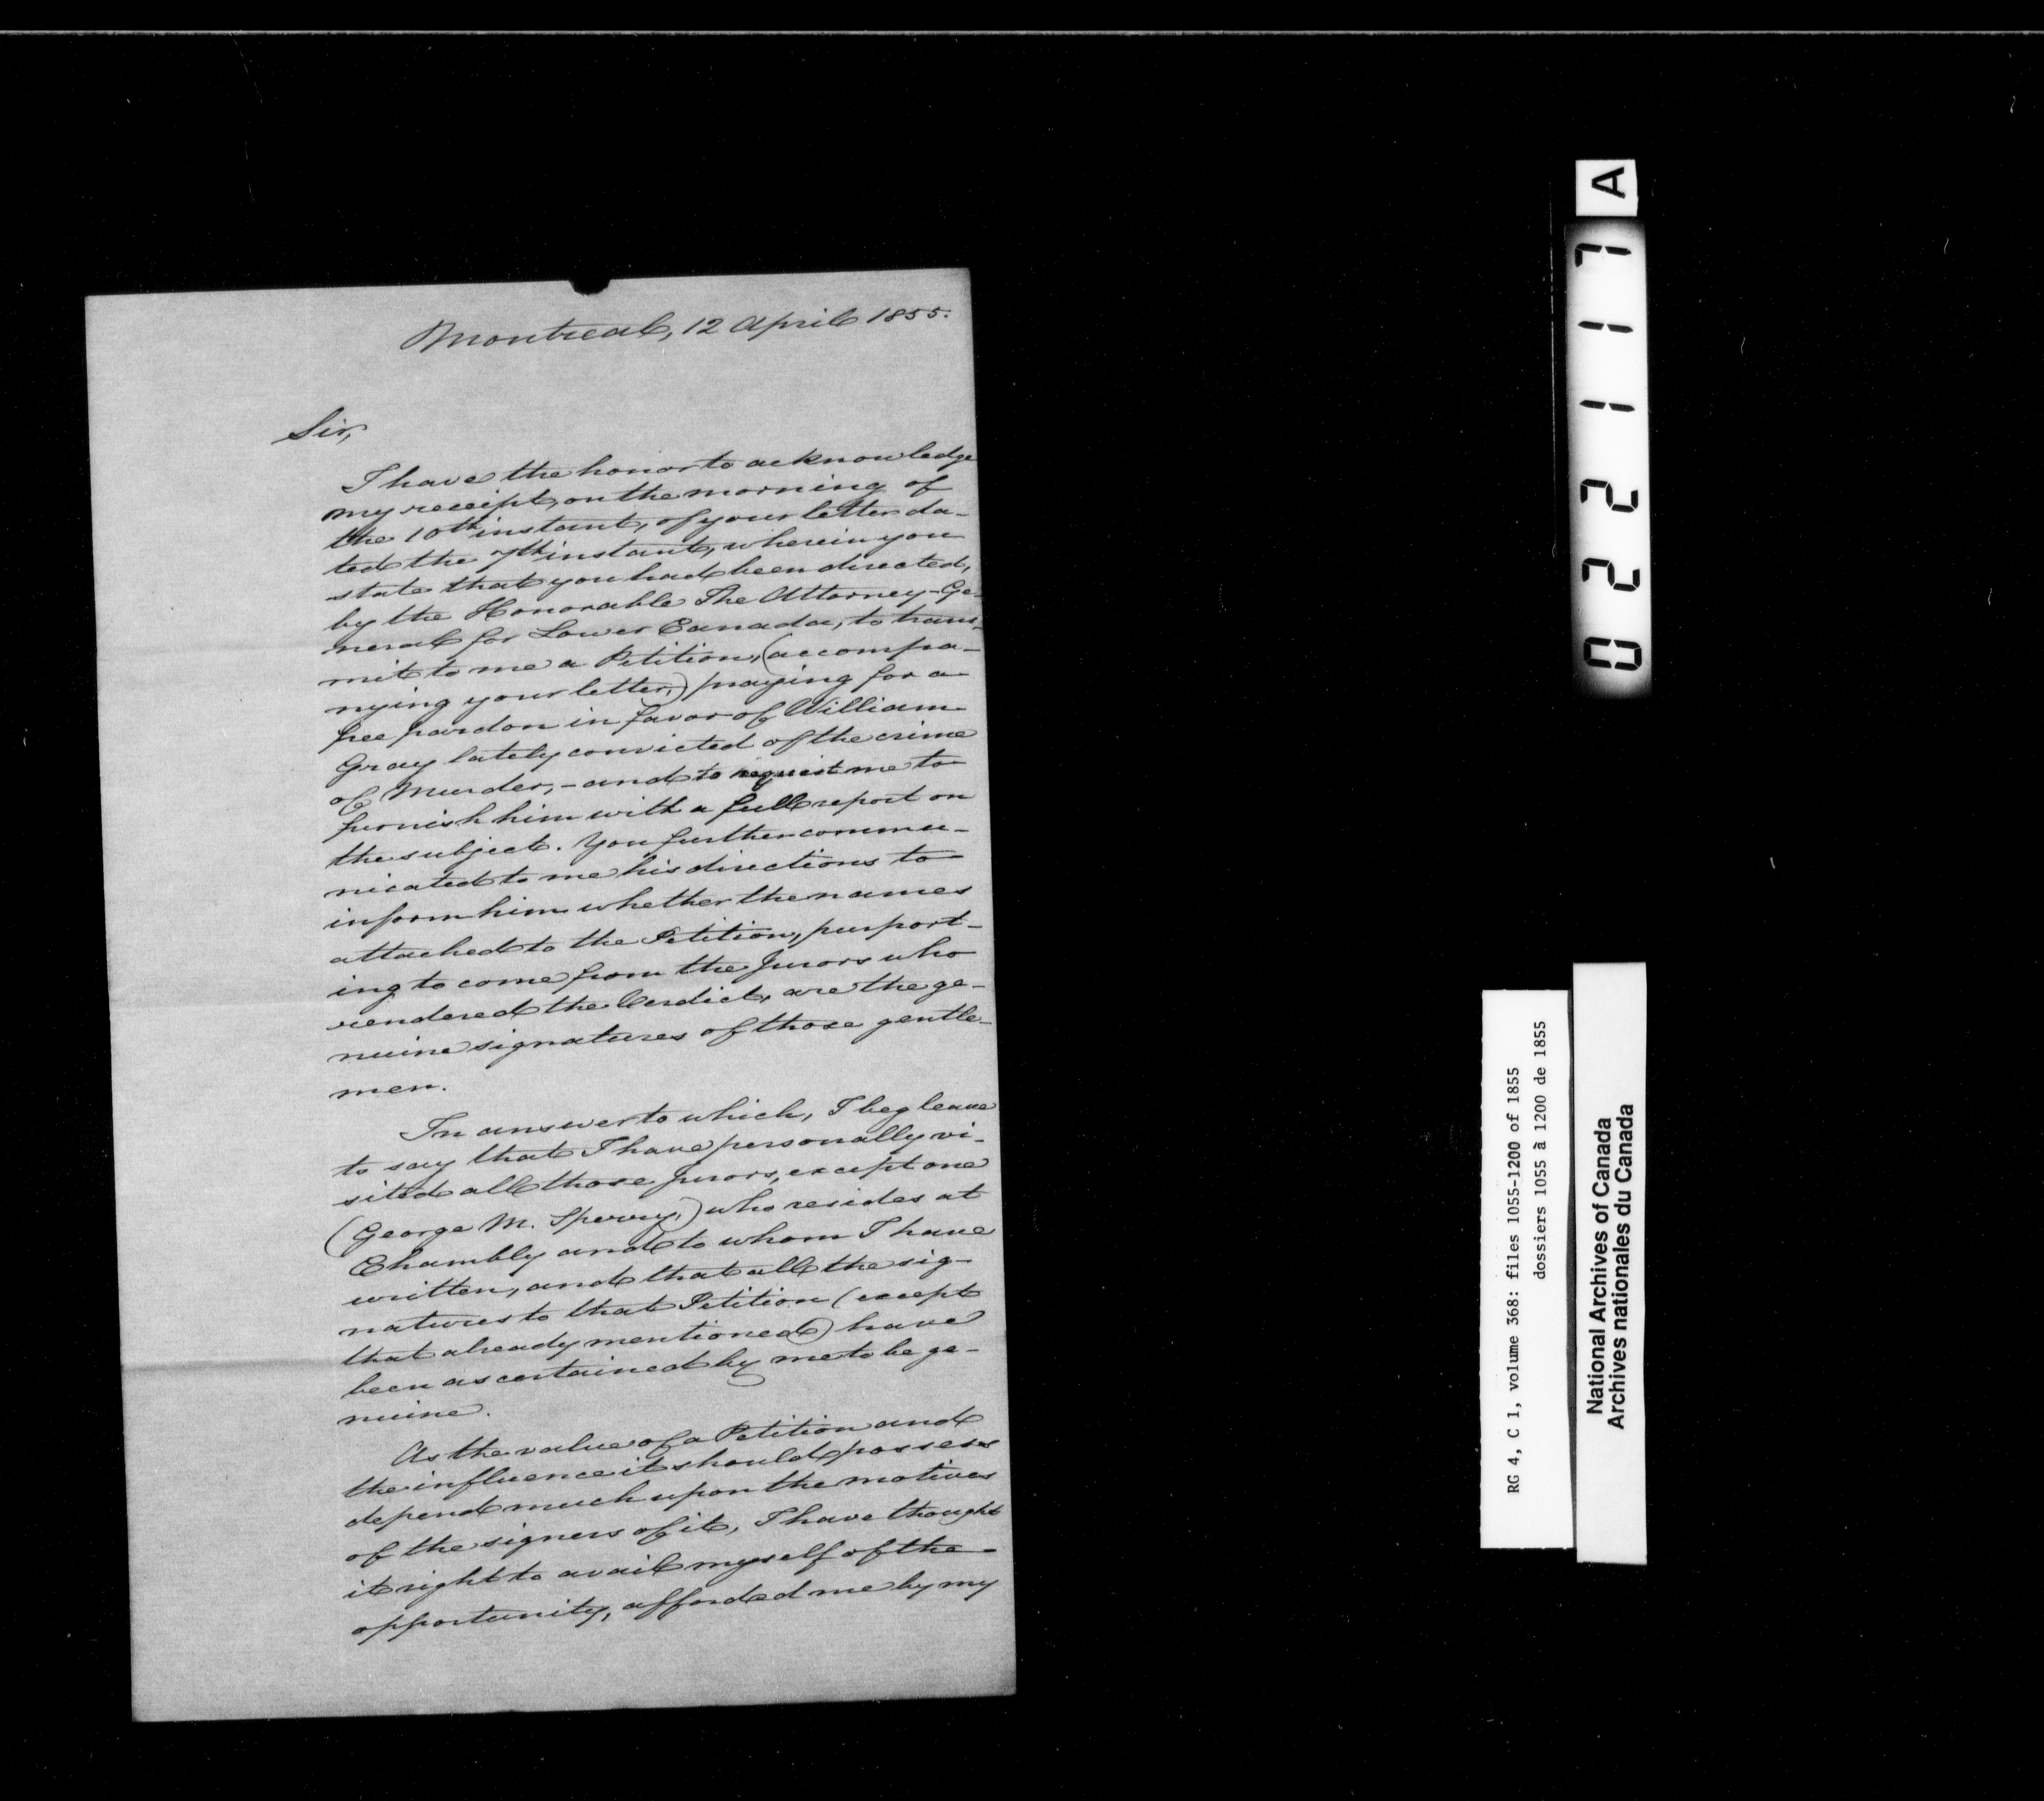 Montreal, 12 April 1855.
Sir,
I have the honor to acknowledge
my receipt, on the morning of
the 10th instant, of your letter da-
ted the 7th instant, wherein you
state that you had been directed,
by the Honorable The Attorney-Ge-
neral for Lower Canada, to trans-
mit to me a Petition, (accompa-
nying your letter,) praying for a
free pardon in favor of William
Gray lately convicted of the crime
of Murder, - and to request me to
furnish him with a full report on
the subject. You further commu-
nicated to me his directions to
inform him whether the names
attached to the Petition, purport-
ing to come from the Jurors who
rendered the Verdict, are the ge-
nuine signatures of those gentle-
men.
In answer to which, I beg leave
to say that I have personally vi-
sited all those Jurors, except one
(George M. Sperry,) who resides at
Chambly and to whom I have
written, and that all the sig-
natures to that Petition (except
that already mentioned) have
been ascertained by me to be ge-
nuine.
As the value of a Petition and
the influence it should possess
depend much upon the motives
of the signers of it, I have thought
it right to avail myself of the
opportunity, afforded me by my
022117 A
RG 4, C 1, volume 368: files 1055-1200 of 1855
dossiers 1055 à 1200 de 1855
National Archives of Canada
Archives nationales du Canada